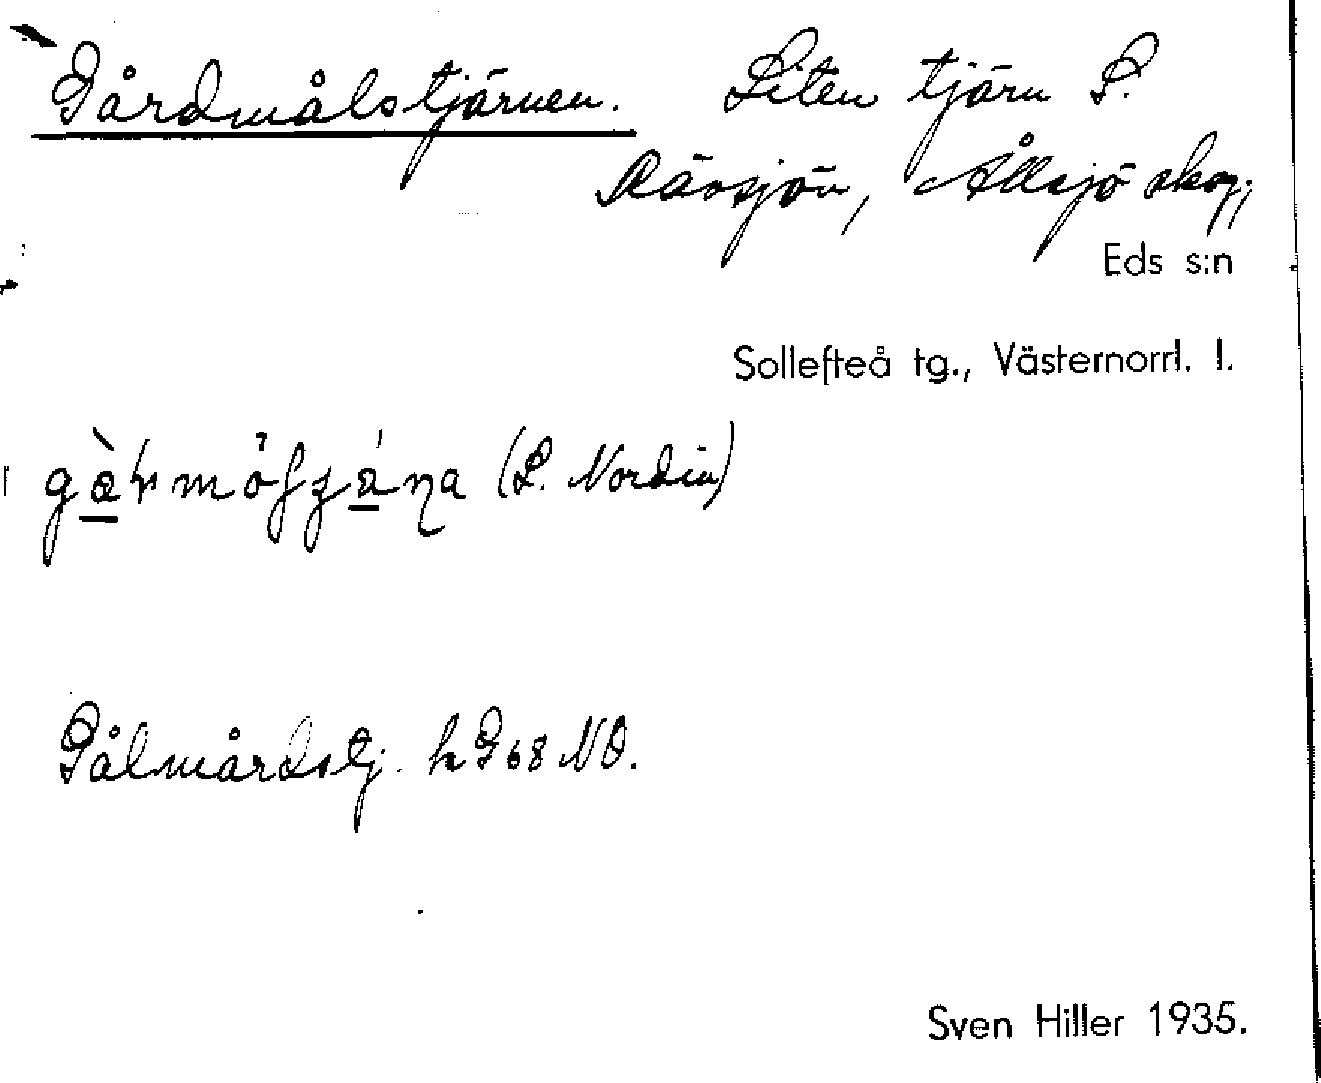 Gårdmålstjärnen. Liten tjärn S.
Rävsjön, Ållsjö skog,
Eds s:n
Sollefteå tg., Västernorrl. l.
(L. Nordin)
Gålmårdstj. h G 68 NO.
Sven Hiller 1935.